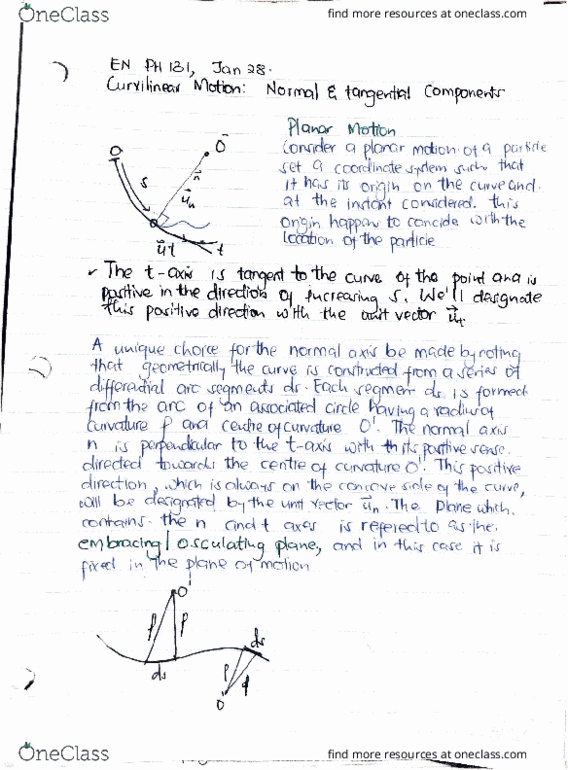 OneClass
find more resources at oneclass.com
EN PH 131, Jan 28.
Curvilinear Motion: Normal & tangential Components
Planar Motion
Consider a planar motion of a particle
set a coordinate system such that
it has its origin on the curve and
at the instant considered. this
origin happens to concide with the
location of the particle
O
O'
S
n
un
ut
t
The t-axis is tangent to the curve of the point and is
positive in the direction of increasing s. We'll designate
this positive direction with the unit vector ut.
A unique choice for the normal axis be made by noting
that geometrically the curve is constructed from a series of
differential arc segments ds. Each segment ds is formed
from the arc of an associated circle having a radius of
curvature ρ and centre of curvature O'. The normal axis
n is perpendicular to the t-axis with its positive sense
directed towards the centre of curvature O'. This positive
direction, which is always on the concave side of the curve,
will be designated by the unit vector un. The plane which
contains the n and t axes is refered to as the
embracing/osculating plane, and in this case it is
fixed in the plane of motion
O'
ρ ρ
ds
ds
ρ ρ
O'
OneClass
find more resources at oneclass.com